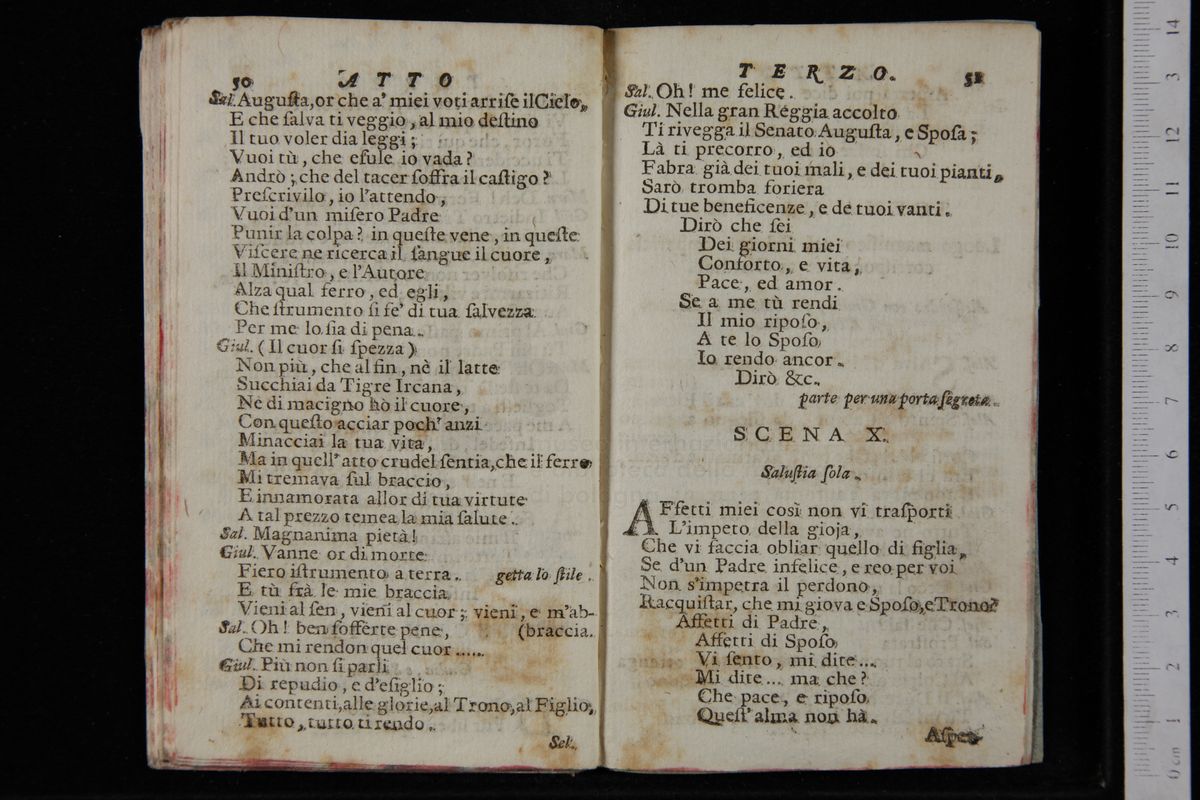 50 ATTO
Sal. Auguſta, or che a' miei voti arriſe il Cielo,
E che ſalva ti veggio, al mio deſtino
Il tuo voler dia leggi;
Vuoi tù, che eſule io vada?
Andrò; che del tacer ſoffra il caſtigo?
Preſcrivilo, io l'attendo,
Vuoi d'un miſero Padre
Punir la colpa? in queſte vene, in queſte
Viſcere ne ricerca il ſangue il cuore,
Il Miniſtro, e l'Autore
Alza qual ferro, ed egli,
Che ſtrumento ſi fe' di tua ſalvezza
Per me lo ſia di pena.
Giul. (Il cuor ſi ſpezza)
Non più, che al fin, nè il latte
Succhiai da Tigre Ircana,
Nè di macigno hò il cuore,
Con queſto acciar poch' anzi
Minacciai la tua vita,
Ma in quell' atto crudel ſentia, che il ferro
Mi tremava ſul braccio,
E innamorata allor di tua virtute
A tal prezzo temea la mia ſalute.
Sal. Magnanima pietà!
Giul. Vanne or di morte
Fiero iſtrumento a terra. getta lo ſtile.
E tù frà le mie braccia
Vieni al ſen, vieni al cuor; vieni, e m'ab-
Sal. Oh! ben ſofferte pene, (braccia.
Che mi rendon quel cuor ......
Giul. Più non ſi parli
Di repudio, e d'eſiglio;
Ai contenti, alle glorie, al Trono, al Figlio,
Tutto, tutto ti rendo.
Sel.
TERZO. 51
Sal. Oh! me felice.
Giul. Nella gran Reggia accolto
Ti rivegga il Senato Auguſta, e Spoſa;
Là ti precorro, ed io
Fabra già dei tuoi mali, e dei tuoi pianti,
Sarò tromba foriera
Di tue beneficenze, e de tuoi vanti.
Dirò che ſei
Dei giorni miei
Conforto, e vita,
Pace, ed amor.
Se a me tù rendi
Il mio ripoſo,
A te lo Spoſo
Io rendo ancor.
Dirò &c.
parte per una porta ſegreta.
SCENA X.
Saluſtia ſola.
AFfetti miei così non vi traſporti
L'impeto della gioja,
Che vi faccia obliar quello di figlia,
Se d'un Padre infelice, e reo per voi
Non s'impetra il perdono,
Racquiſtar, che mi giova e Spoſo, e Trono?
Affetti di Padre,
Affetti di Spoſo
Vi ſento, mi dite...
Mi dite... ma che?
Che pace, e ripoſo
Queſt' alma non hà.
Aſpet-
0 cm 1 2 3 4 5 6 7 8 9 10 11 12 3 14